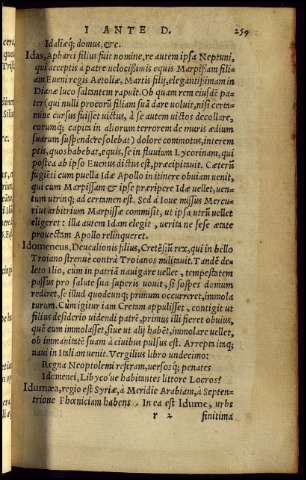 I ANTE D. 259
Idaliæq; domus, &c.
Idas, Apharei filius fuit nomine, re autem ipsa Neptuni,
qui acceptis à patre velocissimis equis Marpissam filia
am Eueni regis Aetoliæ, Martis filij, elegantissimam in
Dianæ luco saltantem rapuit. Ob quam rem eiusdē pa-
ter (qui nulli procorū filiam suā dare voluit, nisi certa-
mine cursus fuisset victus, à se autem victos decollare,
eorumq; capita in aliorum terrorem de muris ædium
suarum suspendere solebat) dolore commotus, interem
ptis, quos habebat, equis, se in fluuium Lycormam, qui
postea ab ipso Euenus dictus est, præcipitauit. Cæterū
fugiēti cum puella Idæ Apollo in itinere obuiam uenit,
qui cum Marpissam & ipse præripere Idæ uellet, uen-
tum utrinq; ad certamen est. Sed à Ioue missus Mercu-
rius arbitrium Marpissæ commisit, ut ipsa utrū uellet
eligeret: illa autem Idam elegit, uerita ne sese ætate
prouectam Apollo relinqueret.
Idomeneus, Deucalionis filius, Cretēsiū rex, qui in bello
Troiano strenue contra Troianos militauit. Tandē de-
leto Ilio, cum in patriā nauigare vellet, tempestatem
passus pro salute sua superis vouit, si sospes domum
rediret, se illud quodcunq; primum occurreret, immola
turum. Cum igitur iam Cretam appulisset, contigit ut
filius desiderio uidendi patrē, primus illi fieret obuius,
quē cum immolasset, siue ut alij habēt, immolare vellet,
ob immanitatē suam à ciuibus pulsus est. Arrepta inq;
naui in Italiam uenit. Vergilius libro undecimo:
Regna Neoptolemi referam, uersosq; penates
Idomenei, Libyco'ue habitantes littore Locros?
Idumæa, regio est Syriæ, à Meridie Arabiam, à Septen-
trione Phœniciam habens. In ea est Idume, urbs
r 2 finitima